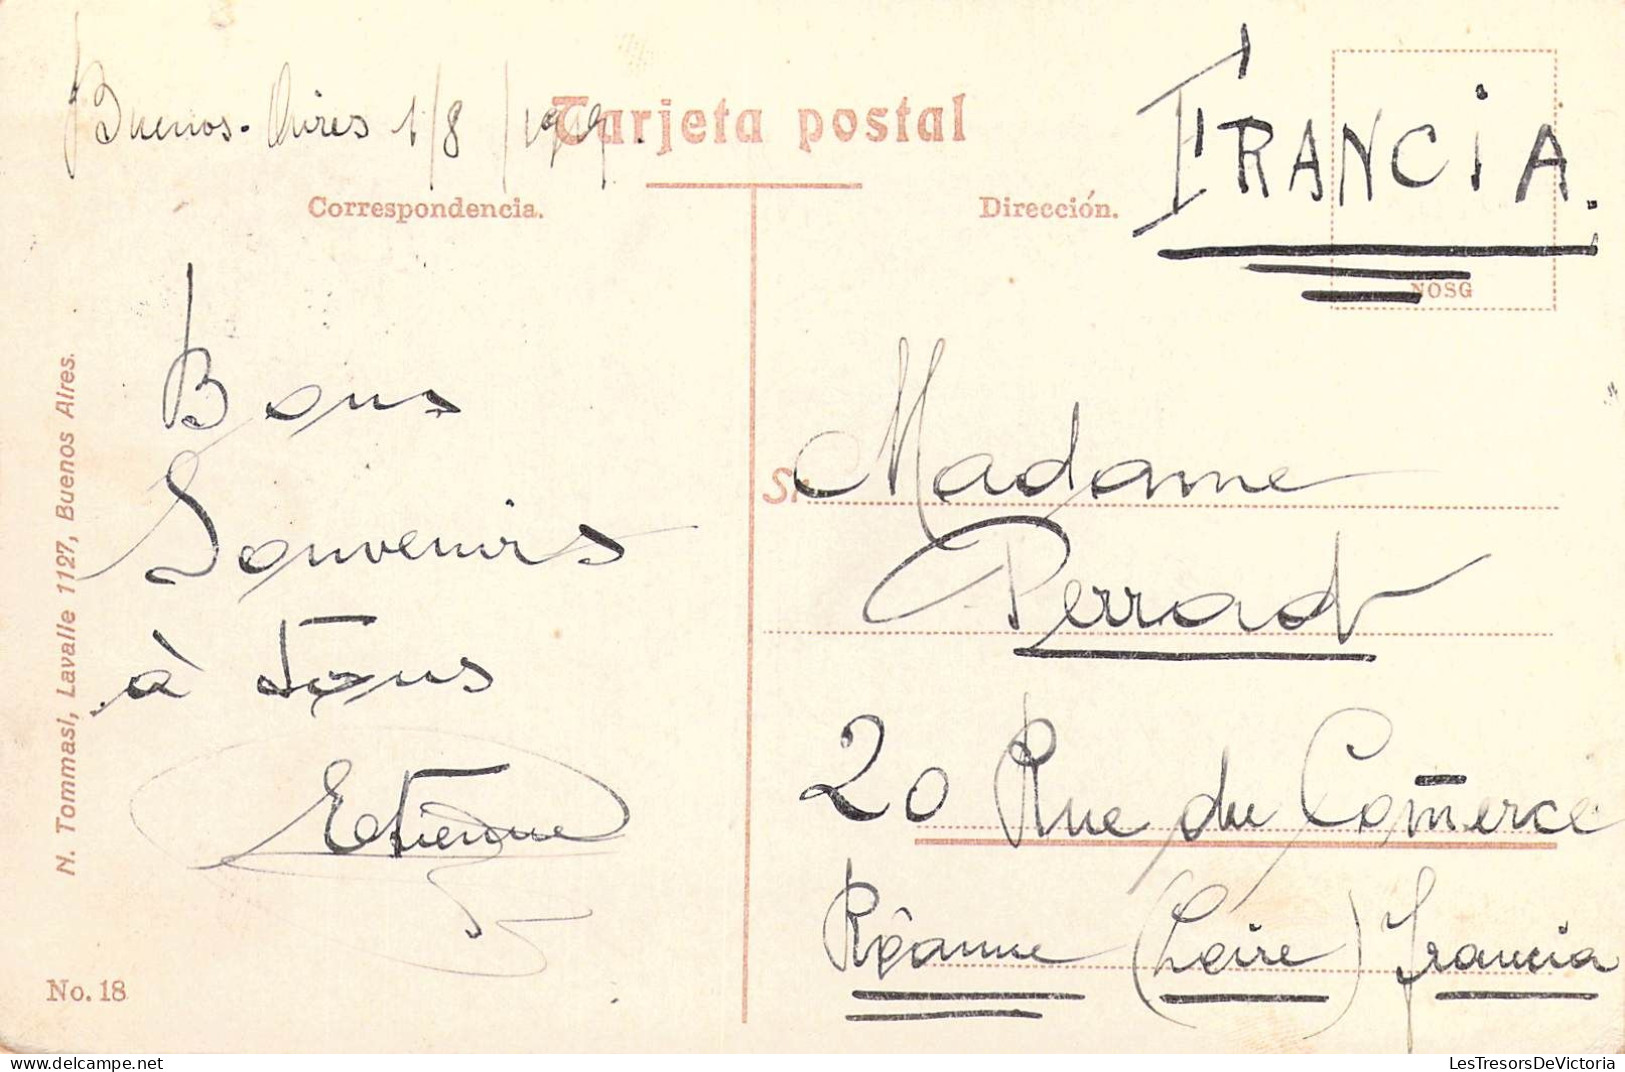 Buenos-Aires 1/8
Tarjeta postal
FRANCIA.
Correspondencia.
Dirección.
NOSG
Bons
Souvenirs
à tous
Etienne
N. Tommasi, Lavalle 1127, Buenos Aires.
No. 18
Sr
Madame
Perrad
20 Rue du Com̄erce
Rôanne (Loire) Francia
LesTresorsDeVictoria